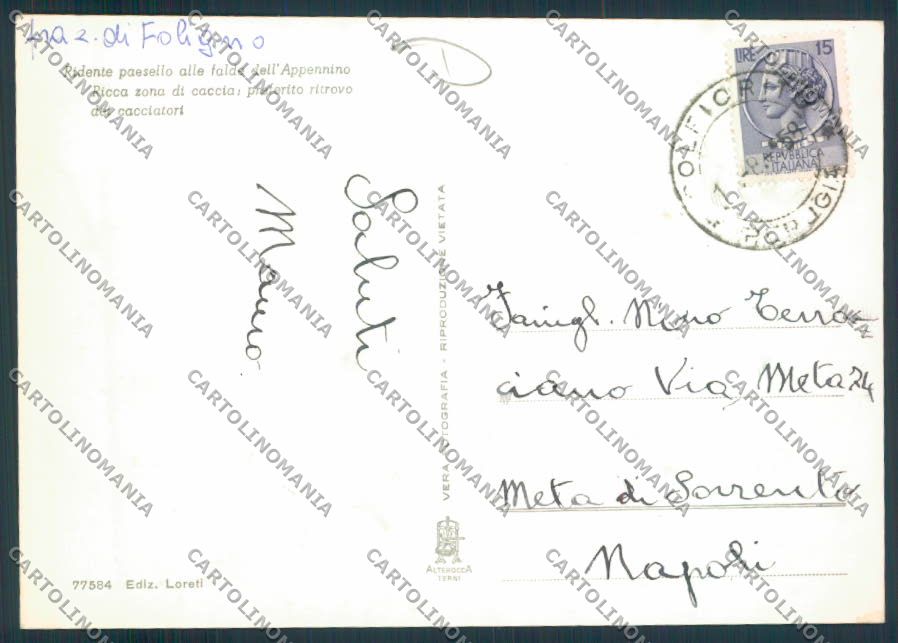 fraz. di Foligno
Ridente paesello alle falde dell'Appennino
Ricca zona di caccia; preferito ritrovo
dei cacciatori
LIRE 15
REPVBBLICA
ITALIANA
Saluti
Mauro
VERA FOTOGRAFIA - RIPRODUZIONE VIETATA
Famigl. Nino Terra-
ciano Via Meta 24
Meta di Sorrento
Napoli
ALTEROCCA
TERNI
77584 Ediz. Loreti
CARTOLINOMANIA